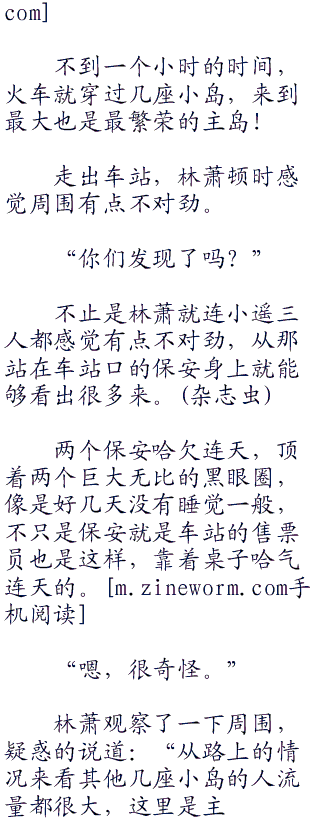 com]
不到一个小时的时间，
火车就穿过几座小岛，来到
最大也是最繁荣的主岛！
走出车站，林萧顿时感
觉周围有点不对劲。
“你们发现了吗？”
不止是林萧就连小遥三
人都感觉有点不对劲，从那
站在车站口的保安身上就能
够看出很多来。(杂志虫)
两个保安哈欠连天，顶
着两个巨大无比的黑眼圈，
像是好几天没有睡觉一般，
不只是保安就是车站的售票
员也是这样，靠着桌子哈气
连天的。[m.zineworm.com手
机阅读]
“嗯，很奇怪。”
林萧观察了一下周围，
疑惑的说道：“从路上的情
况来看其他几座小岛的人流
量都很大，这里是主